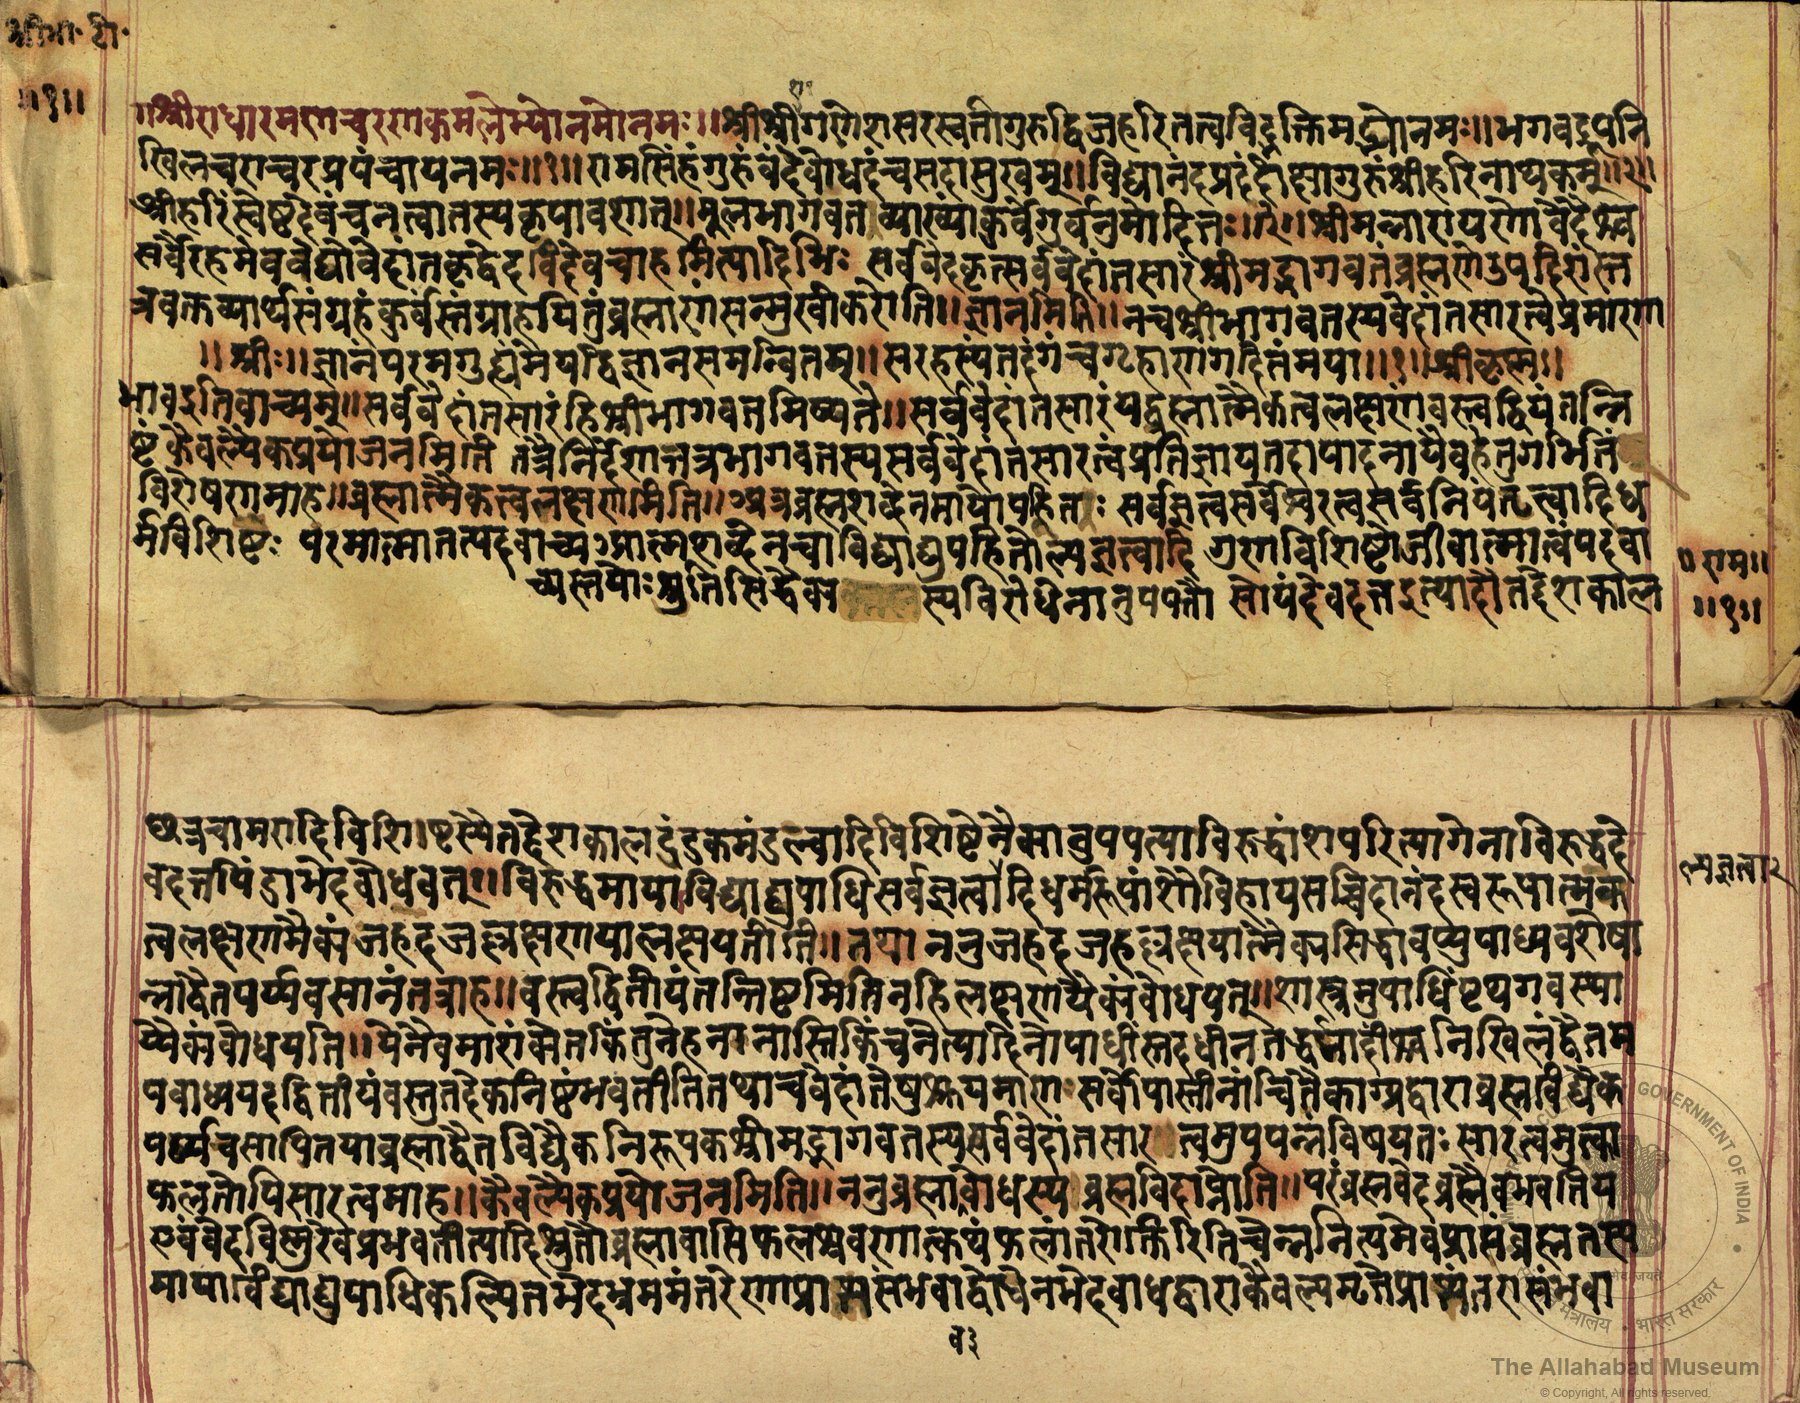 श्रीभा॰ टी॰
॥१॥
॥श्रीराधारमणचरणकमलेभ्योनमोनमः॥श्रीश्रीगणेशसरस्वतीगुरुद्विजहरितत्त्वविद्भक्तिमद्भ्योनमः॥भगवद्रूपनि
खिलचराचरप्रपंचायनमः॥१॥रामसिंहंगुरुंवंदेवोधदंचसदासुखम्॥विद्यानंदप्रदंदीक्षागुरुंश्रीहरिनाथकम्॥२॥
श्रीहरिंस्वेष्टदेवंचनत्वातस्यकृपावशात्॥मूलभागवतव्याख्यांकुर्वेगुर्वनुमोदितः॥३॥श्रीमन्नारायणोवेदैश्च
सर्वैरहमेववेद्योवेदांतकृद्वेदविदेवचाहमित्यादिभिः सर्ववेदकृत्सर्ववेदांतसारंश्रीमद्भागवतंब्रह्मणेऽपदिशंस्त
त्रवक्तव्यार्थसंग्रहंकुर्वंस्तंग्राहयितुंब्रह्माणंसन्मुखीकरोति॥ज्ञानमिति॥नचश्रीभागवतस्यवेदांतसारत्वेप्रमाणा
॥श्रीः॥ज्ञानंपरमगुह्यंमेयद्विज्ञानसमन्वितम्॥सरहस्यंतदंगंचगृहाणगदितंमया॥१॥श्रीकृष्ण॥
भावइतिवाच्यम्॥सर्ववेदांतसारंहिश्रीभागवतमिष्यते॥सर्ववेदांतसारंयद्ब्रह्मात्मैकत्वलक्षणंवस्त्वद्वितीयंतन्नि
ष्टंकैवल्यैकप्रयोजनमिति तत्रैनिर्देशात्तत्रभागवतस्यसर्ववेदांतसारत्वंप्रतिज्ञायतदापादनायैवहेतुगर्भिति
विशेषणमाह॥ब्रह्मात्मैकत्वलक्षणमिति॥अत्रब्रह्मशब्देनमायोपहितः सर्वज्ञत्वसर्वेश्वरत्वसर्वनियंतृत्वादिध
र्मविशिष्टः परमात्मातत्पदवाच्यआत्मशब्देनचाविद्याद्युपहितोल्पज्ञत्वादि गुणविशिष्टोजीवात्मात्वंपदवा
च्यस्तयोःश्रुतिसिद्धैक्य स्यविरोधेनानुपपत्तौ सोयंदेवदत्तइत्यादौतद्देशकाल
॥राम॥
॥१॥
छत्रचामरादिविशिष्टस्यैतद्देशकालदंडकमंडल्वादिविशिष्टेनैक्यानुपपत्याविरुद्धांशपरित्यागेनाविरुद्धदे
वदत्तपिंडाभेदवोधवत्॥विरुद्धमायाविद्याद्युपाधिसर्वज्ञत्वादिधर्मरूपांशौविहायसच्चिदानंदस्वरूपात्मक
ल्पज्ञत्वा२
त्वलक्षणमैक्यंजहदजल्लक्षणयालक्षयतीति॥तथा ननुजहदजहल्लक्षयात्मैक्यसिद्धावप्युपाध्यवशेषा
न्नाद्वैतपर्य्यवसानंतत्राह॥वस्त्वद्वितीयंतन्निष्टमितिनहिलक्षणयैक्यंवोधयत्॥शास्त्रमुपाधिंपृथगवस्था
प्यैक्यंवोधयति॥येनैवमाशंक्येतकिंतुनेहनानास्तिकिंचनेत्यादिनोपाधींस्तदधीनतद्धर्मादींश्चनिखिलंद्वैतम
पवाध्ययदद्वितीयंवस्तुतदेकनिष्टंभवतीतितथाचवेदांतेषुश्रूयमाणःसर्वोपास्तीनांचितैकाग्र्यद्वाराब्रह्मविद्यैक
पर्य्यवसायितयाब्रह्माद्वैतविद्यैकनिरूपकश्रीमद्भागवतस्यसर्ववेदांतसारत्वमुपपन्नविषयतःसारत्वमुत्त्का
फलतोपिसारत्वमाह॥कैवल्यैकप्रयोजनमिति॥ननुब्रह्माववोधस्य ब्रह्मविदाप्नोति॥परंब्रह्मवेदब्रह्मैवभवतिय
एवंवेदविष्णुरेवप्रभवतीत्यादिश्रुतौब्रह्मावाप्तिफलश्रवणात्कथंफलांतरोक्तिरितिचेन्ननित्यमेवप्राप्तंब्रह्मतस्य
मायाविद्याद्युपाधिकल्पितभेदभ्रममंतरेणाप्राप्त्यसंभवाद्वोधेनभेदवाधद्वाराकैवल्यमृतेप्राप्त्यंतरासंभवा
व३
GOVERNMENT OF INDIA
मंत्रालय
भारत सरकार
The Allahabad Museum
© Copyright, All rights reserved.